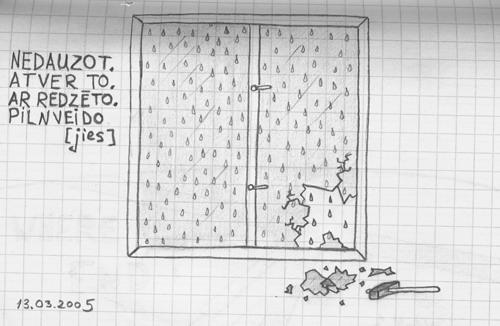 NEDAUZOT.
ATVER TO.
AR REDZĒTO.
PILNVEIDO
[jies]
13.03.2005